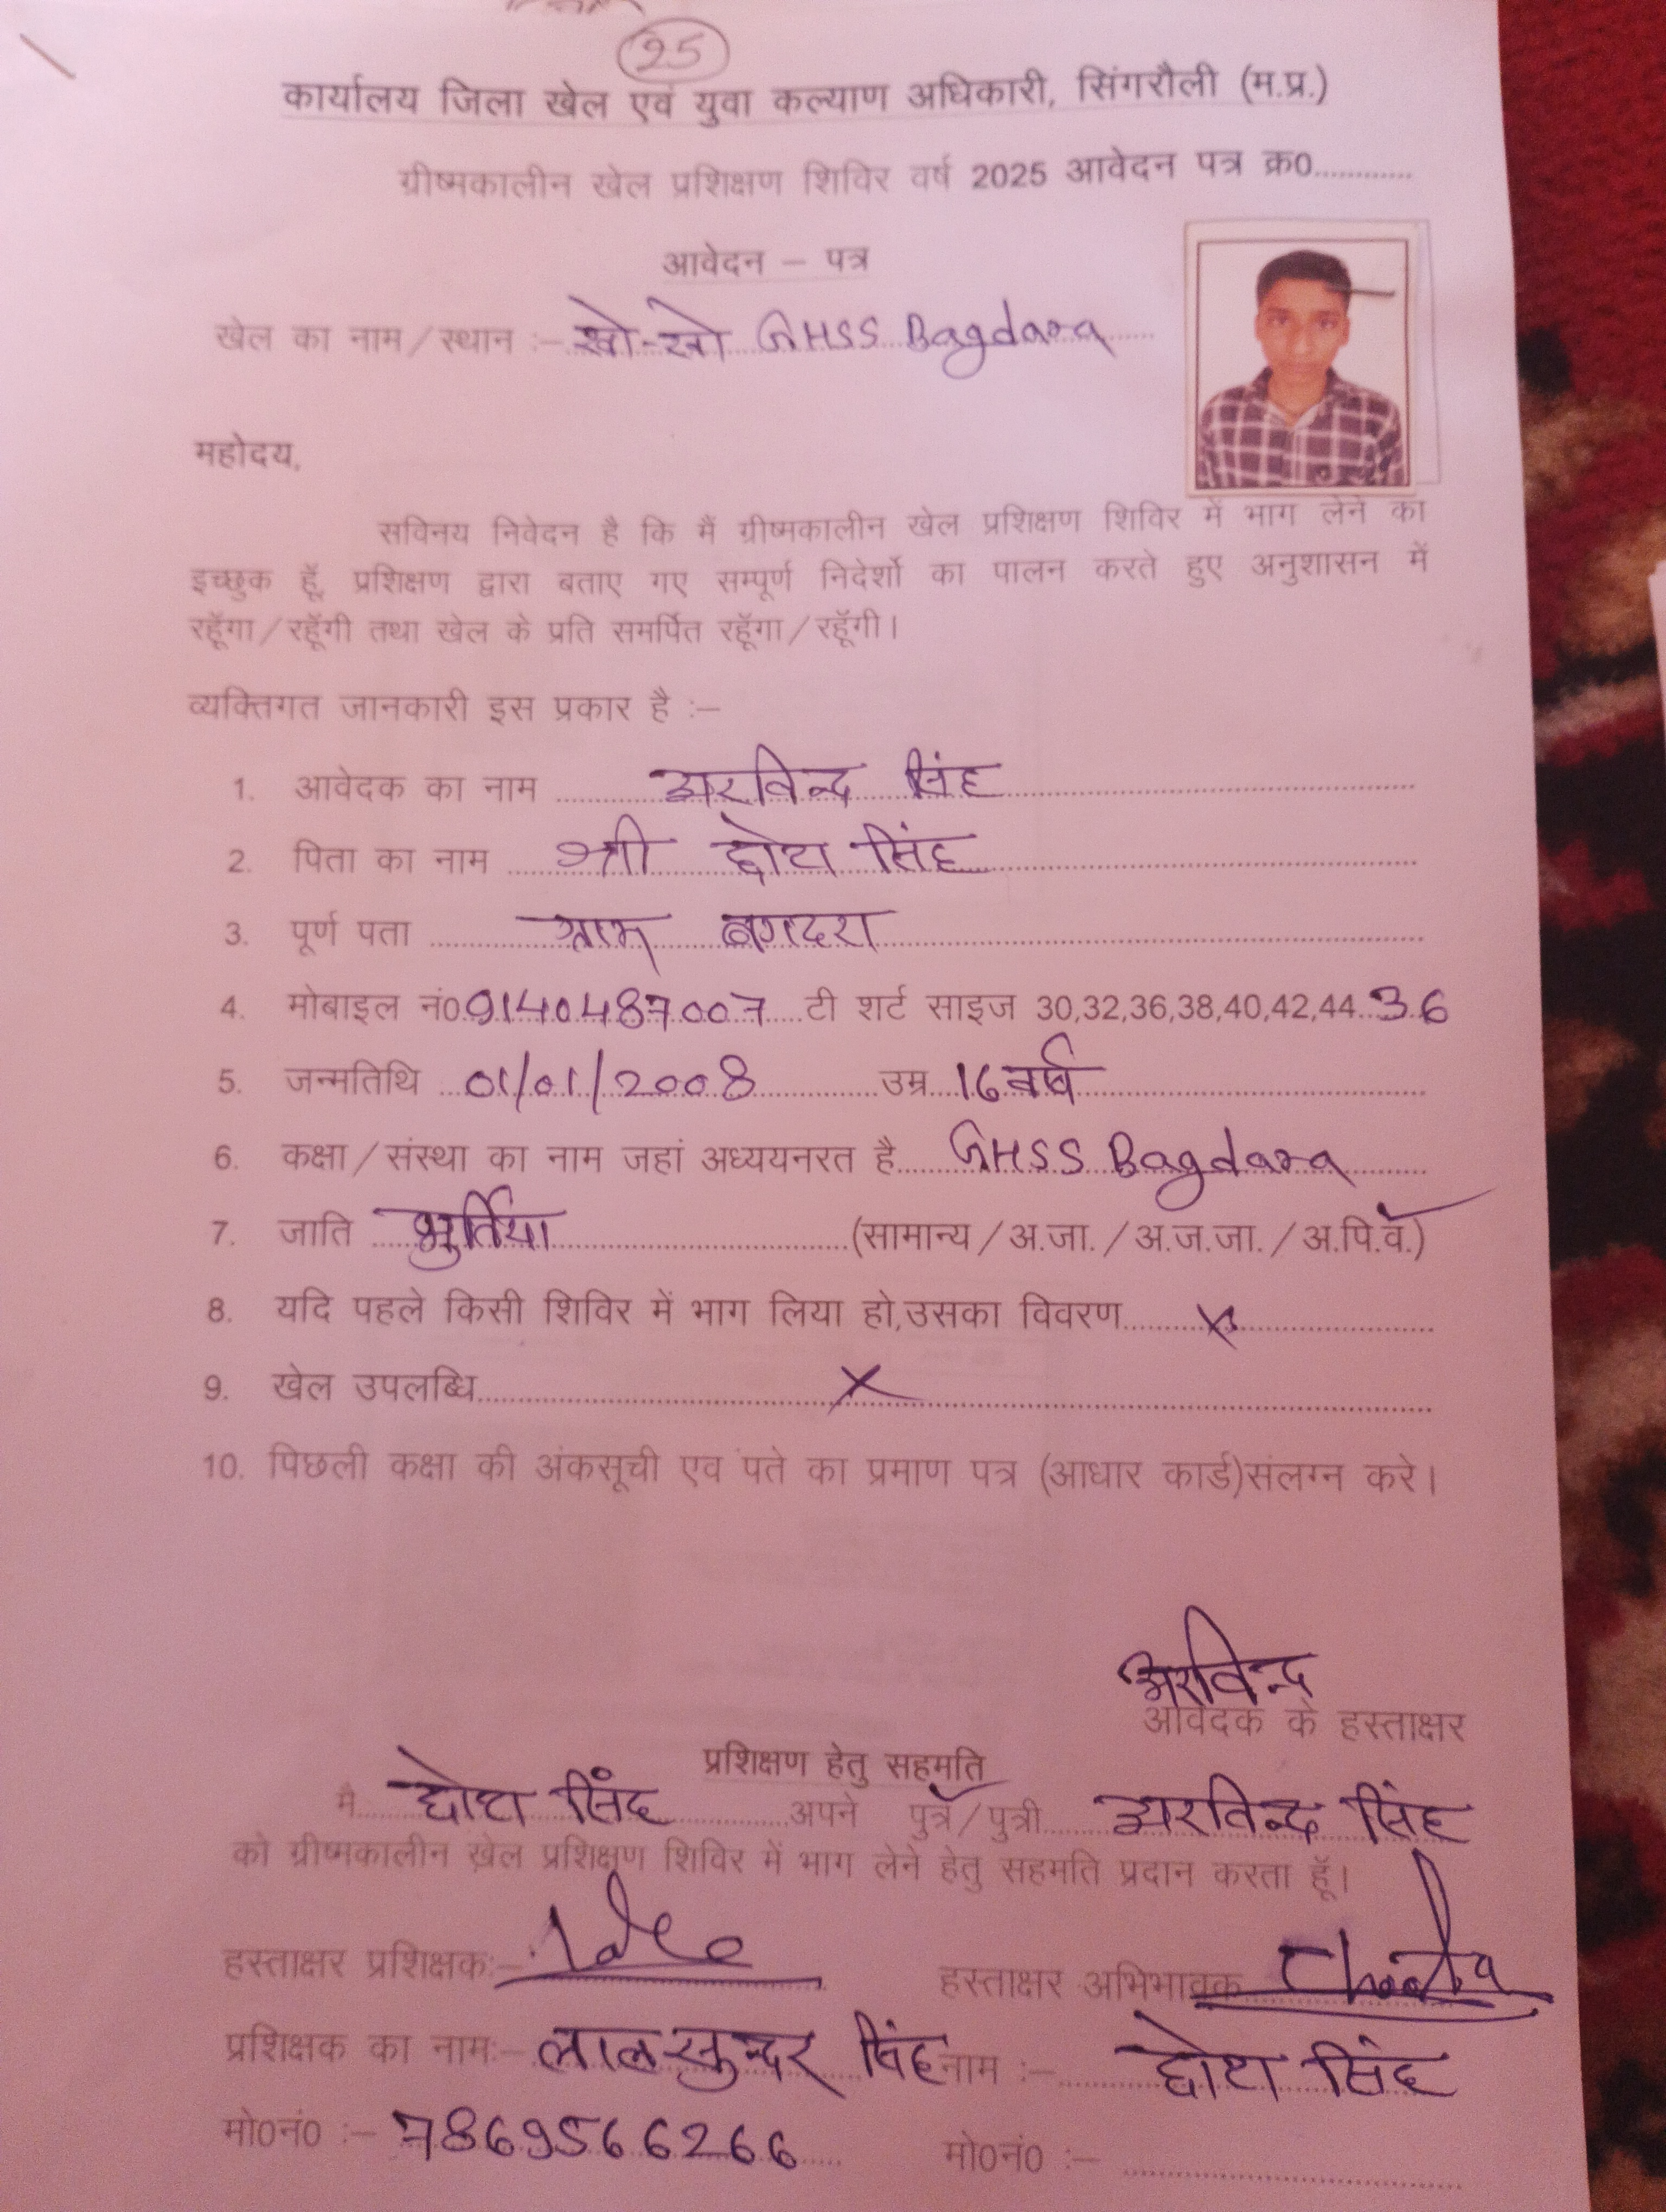 25
कार्यालय जिला खेल एवं युवा कल्याण अधिकारी, सिंगरौली (म.प्र.)
ग्रीष्मकालीन खेल प्रशिक्षण शिविर वर्ष 2025 आवेदन पत्र क्र0............
आवेदन – पत्र
खेल का नाम/स्थान :– खो-खो GHSS Bagdara
महोदय,
सविनय निवेदन है कि मैं ग्रीष्मकालीन खेल प्रशिक्षण शिविर में भाग लेने का
इच्छुक हूँ, प्रशिक्षण द्वारा बताए गए सम्पूर्ण निदेर्शो का पालन करते हुए अनुशासन में
रहूँगा/रहूँगी तथा खेल के प्रति समर्पित रहूँगा/रहूँगी।
व्यक्तिगत जानकारी इस प्रकार है :–
1. आवेदक का नाम अरविन्द सिंह
2. पिता का नाम श्री छोटा सिंह
3. पूर्ण पता ग्राम बगदरा
4. मोबाइल नं0 9140487007 टी शर्ट साइज 30,32,36,38,40,42,44 36
5. जन्मतिथि 01/01/2008 उम्र 16 वर्ष
6. कक्षा/संस्था का नाम जहां अध्ययनरत है GHSS Bagdara
7. जाति भुर्तिया (सामान्य/अ.जा./अ.ज.जा./अ.पि.व.)
8. यदि पहले किसी शिविर में भाग लिया हो,उसका विवरण X
9. खेल उपलब्धि X
10. पिछली कक्षा की अंकसूची एव पते का प्रमाण पत्र (आधार कार्ड)संलग्न करे।
अरविन्द
आवेदक के हस्ताक्षर
प्रशिक्षण हेतु सहमति
मै छोटा सिंह अपने पुत्र/पुत्री अरविन्द सिंह
को ग्रीष्मकालीन खेल प्रशिक्षण शिविर में भाग लेने हेतु सहमति प्रदान करता हूँ।
हस्ताक्षर प्रशिक्षक:– हस्ताक्षर अभिभावक Chhota
प्रशिक्षक का नाम:– लाल सुन्दर सिंह नाम :– छोटा सिंह
मो0नं0 :– 7869566266 मो0नं0 :–